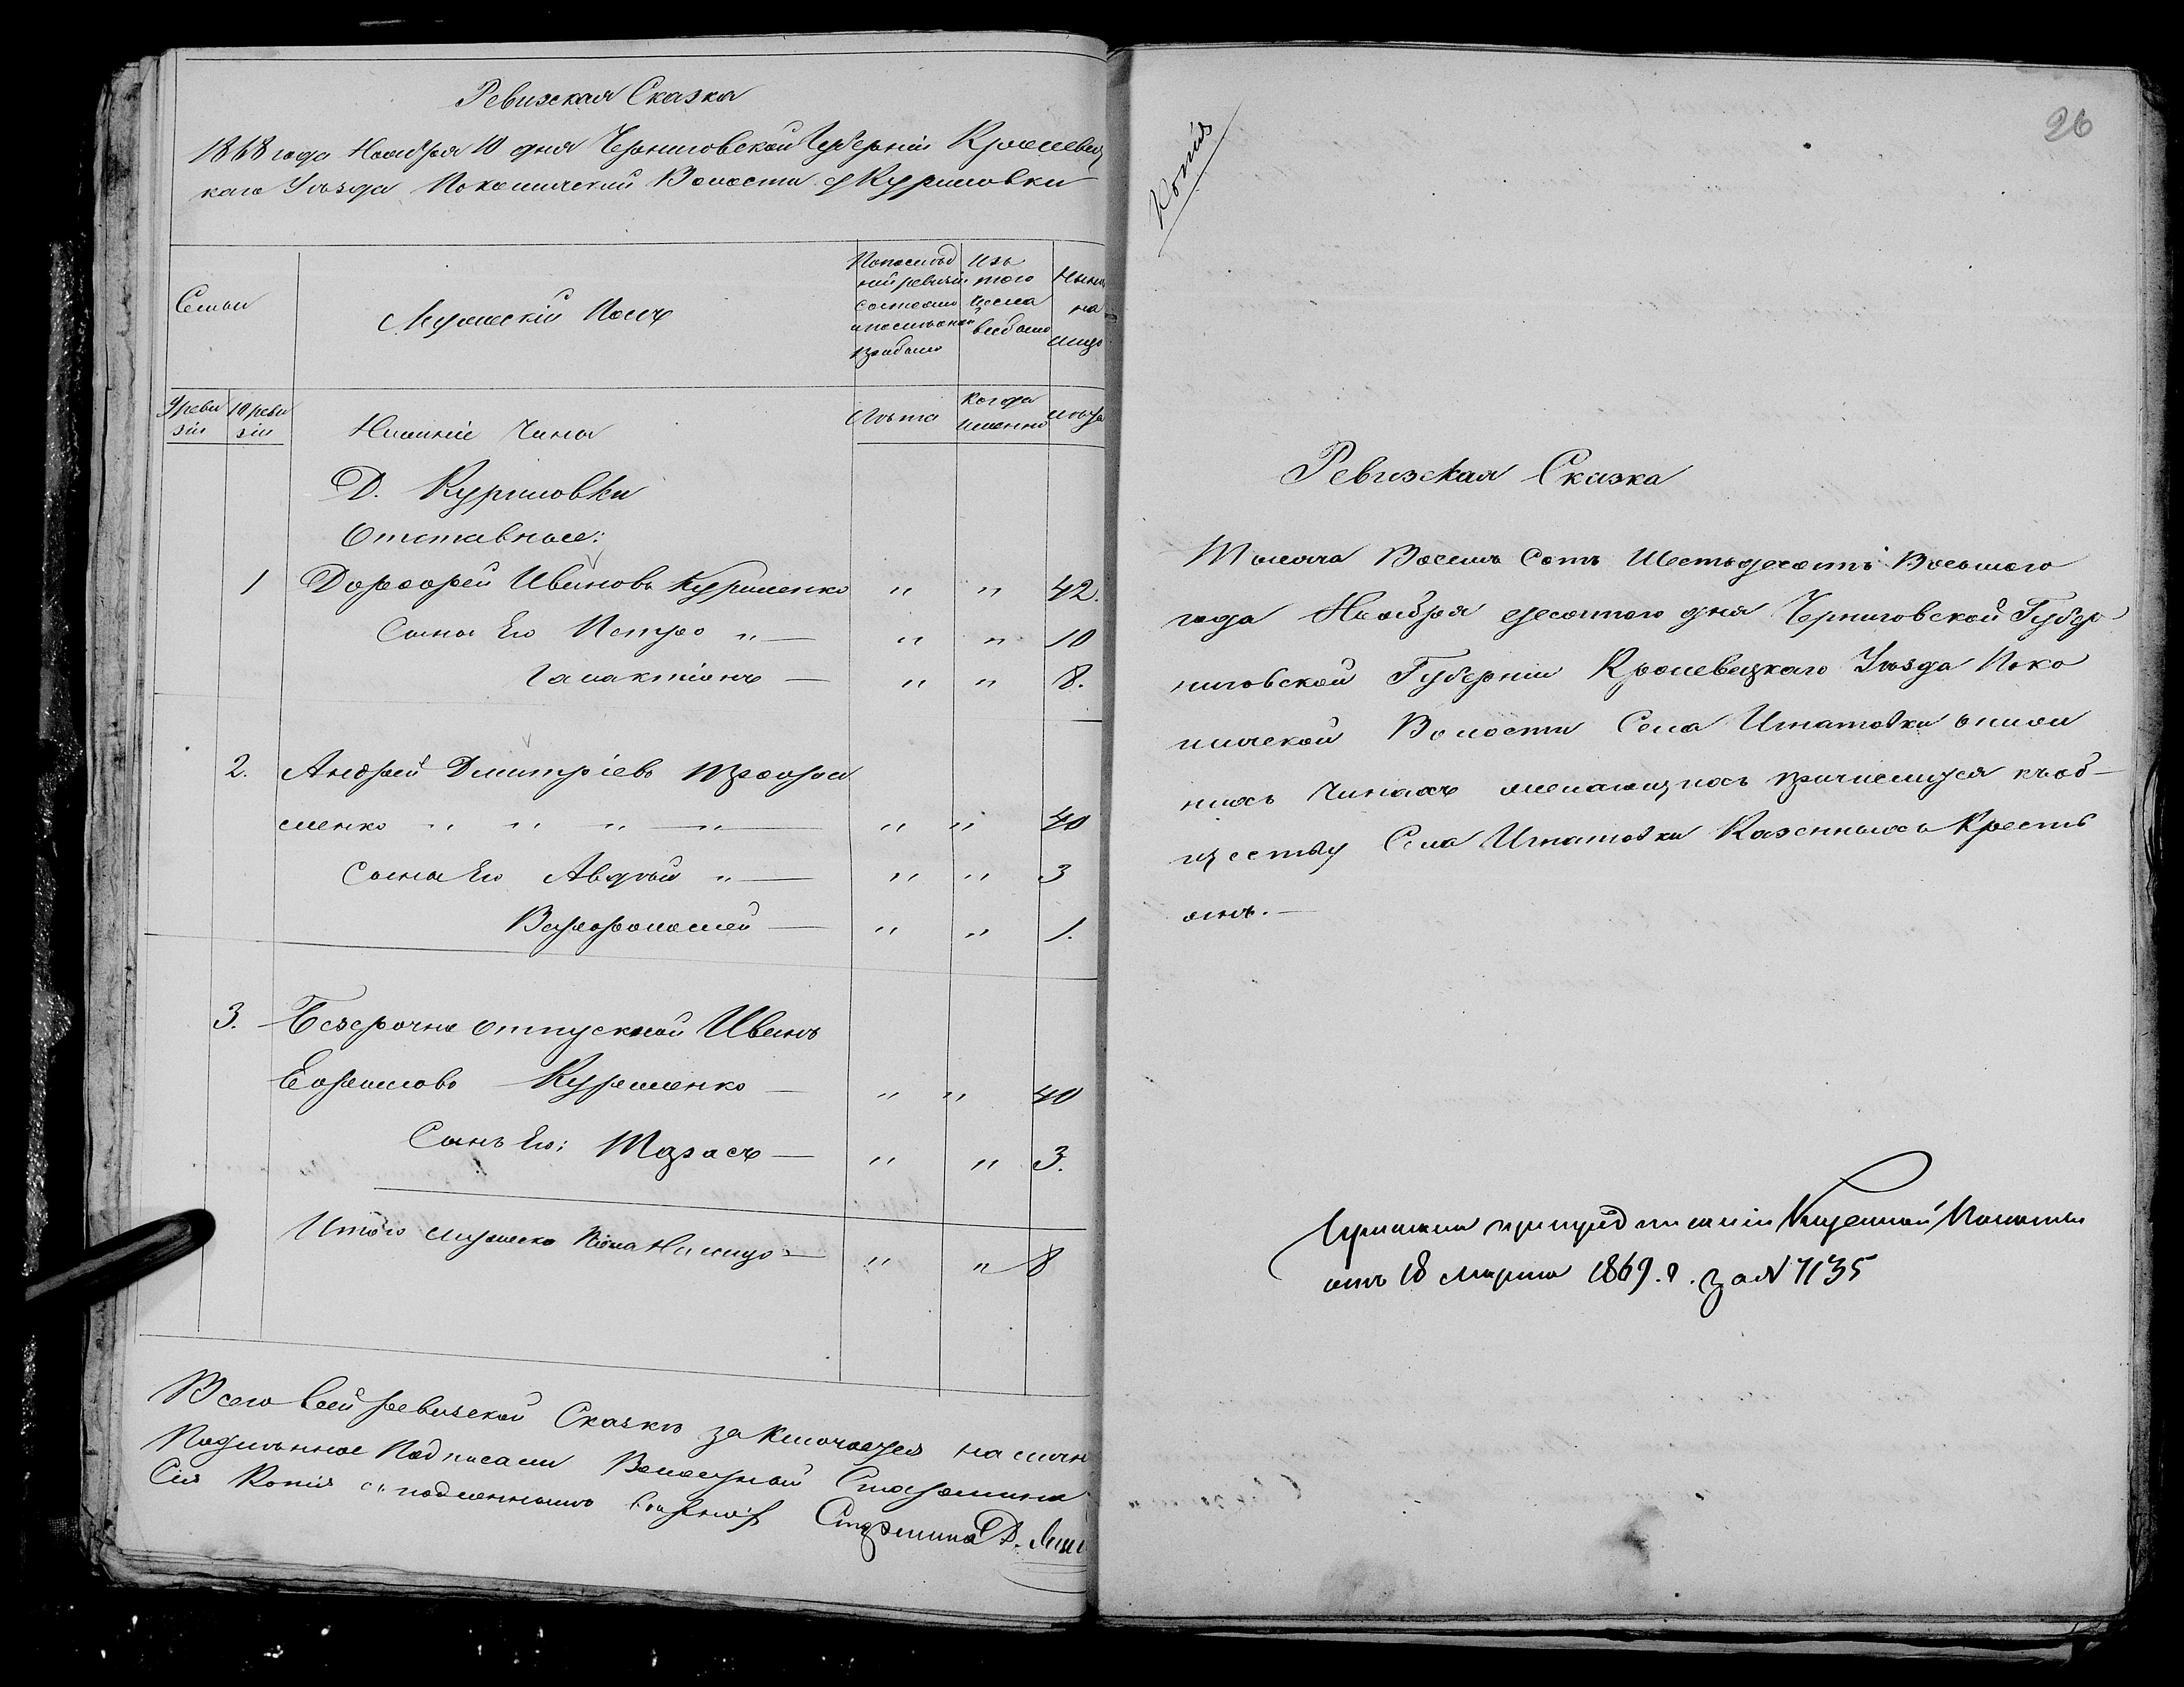 Ревизская Сказка
1868 года Ноября 10 дня Черниговской Губерніи Кролевец
каго Уѣзда Покошической Волости д Куриловки
Семьи
Мужескій Полъ
Попослѣд
ней ревизіи
состояло
и послѣ оной
прибыло
Изъ
того
числа
выбыло
Нынѣ
на
лицо
9 реви
зіи
10 реви
зіи
Нижніе Чины
Лѣта
Когда
именно
лѣта
Д. Куриловки
Отставные:
1 Дорофей Ивановъ Куриленко " " 42.
Сыны Его Петро " " " 10
Галактіонъ " " 8.
2. Андрей Дмитріевъ
менко " " " " " " 40
Сыны Его Авдѣй " " " 3
Варфоломей " " 1.
3. Безсрочно отпускной Иванъ
Ефимовъ Куриленко " " 40
Сынъ Его: Тарасъ " " 3.
Итого мужеска пола На лицо " " 8
Всего в сей ревизской Сказкѣ заключается на
Подлинное Подписали Волостной Старшина
Сія Копія съ подлиннымъ вѣрна Старшина Д.
26
Копія
Ревизская Сказка
Тысяча Восемь Сотъ Шестьдесятъ Восьмого
года Ноября десятого дня Черниговской Губер
ниговской Губерніи Кролевецкаго Уѣзда Поко
шической Волости Села Игнатовки о ниж
нихъ Чинахъ желающихъ причислится къ об-
ществу Села Игнатовки Казенныхъ Кресть
янъ.
при предписаніи Казенной Палаты
отъ 18 Марта 1869. г. за N 7135